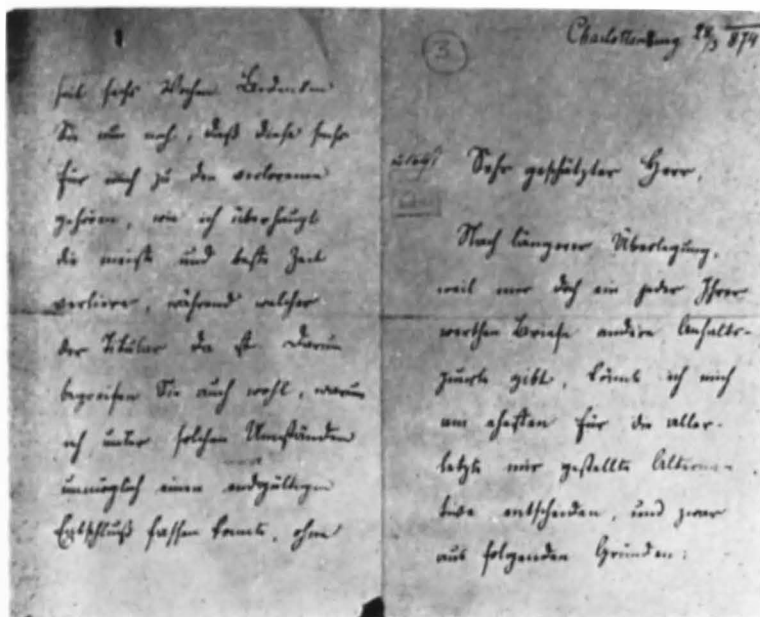 seit sechs Wochen Bedenken
Sie nur noch, daß diese sechs
für mich zu den verlorenen
gehören, wie ich überhaupt
die meiste und beste Zeit
verliere, während welcher
der Titular da ist. Darum
begreifen Sie auch wohl, warum
ich unter solchen Umständen
unmöglich einen endgültigen
Entschluß fassen konnte, ohne
3
Charlottenburg 28/3 874
Sehr geschätzter Herr,
Nach längerer Überlegung,
weil mir doch ein jeder Ihrer
werthen Briefe andere Anhalts-
punkte gibt, könnte ich mich
am ehesten für die aller-
letzte mir gestellte Alterna-
tive entscheiden, und zwar
aus folgenden Gründen: